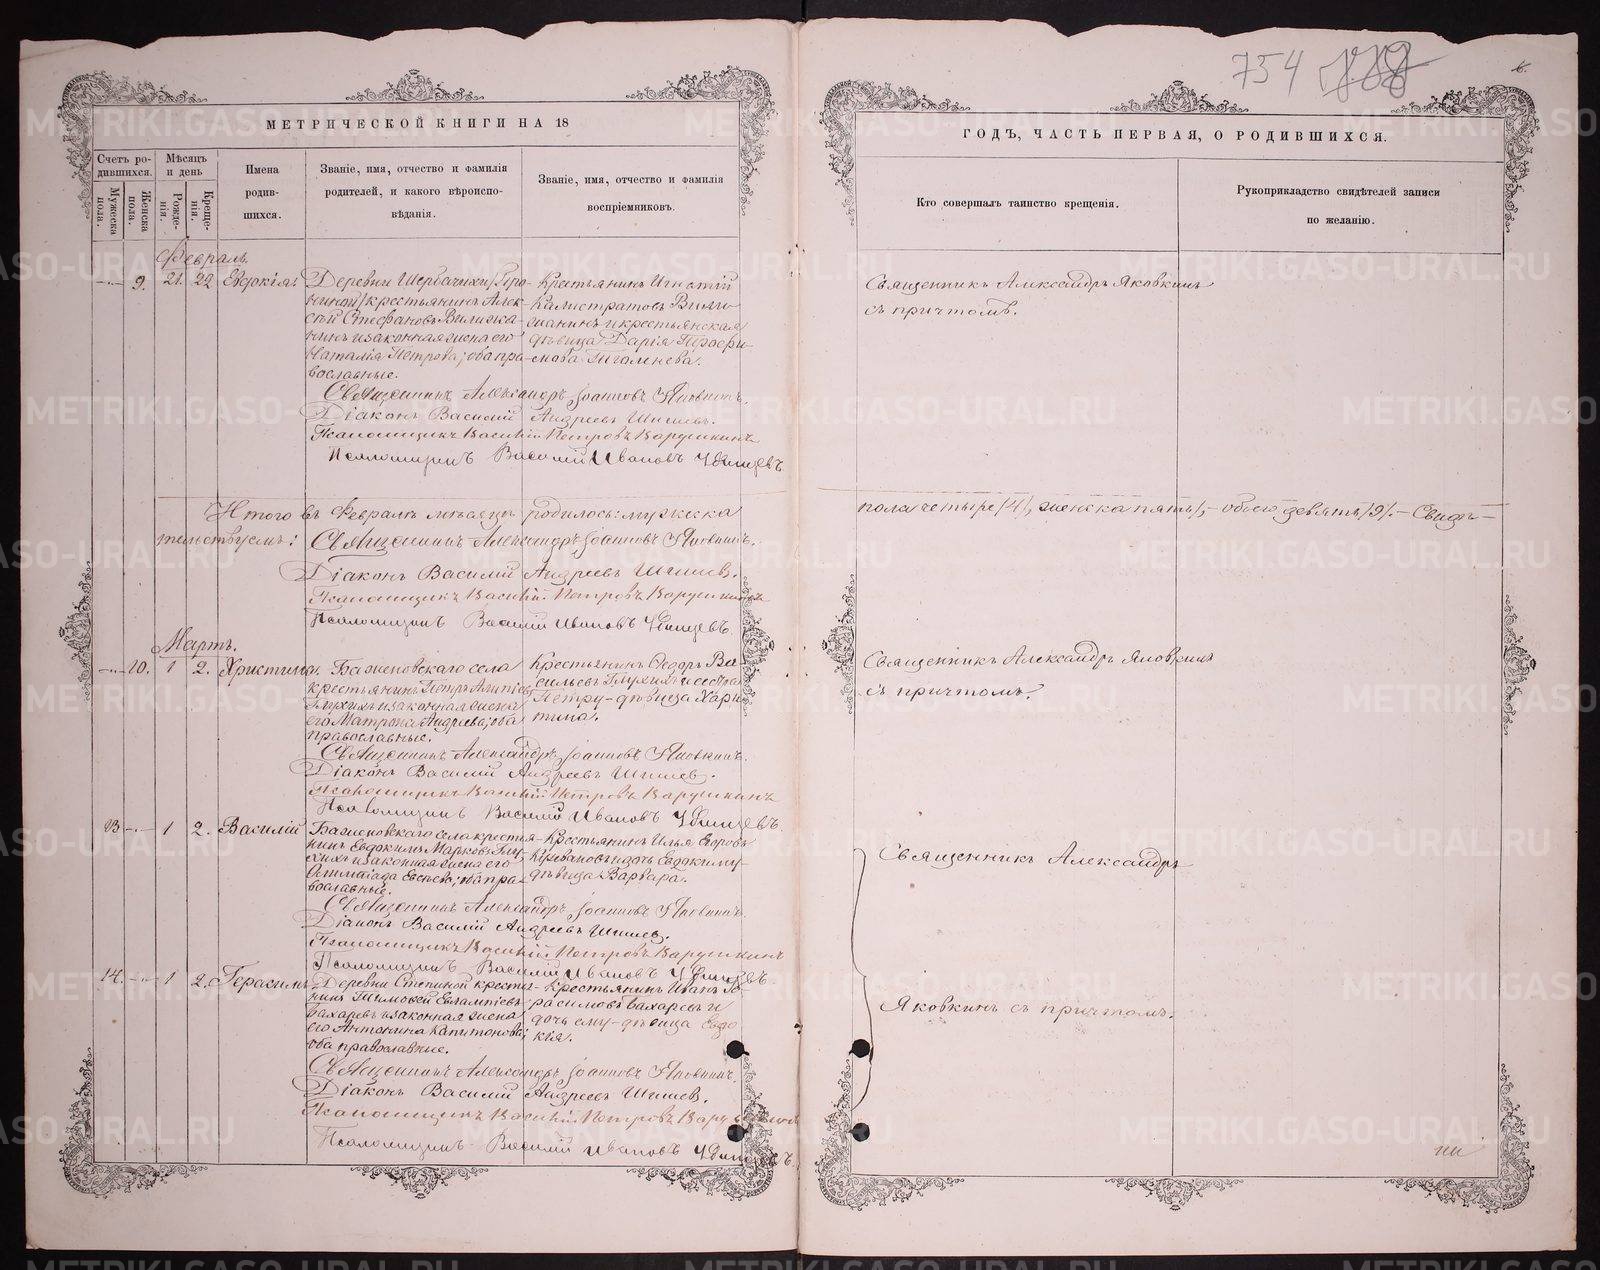 754
МЕТРИЧЕСКОЙ КНИГИ НА 18
ГОДЪ, ЧАСТЬ ПЕРВАЯ, О РОДИВШИХСЯ.
Счетъ ро-
дившихся.
Мужеска
пола.
Женска
пола.
Мѣсяцъ
и день
Рожде-
нія.
Креще-
нія.
Имена
родив-
шихся.
Званіе, имя, отчество и фамилія
родителей, и какого вѣроиспо-
вѣданія.
Званіе, имя, отчество и фамилія
воспріемниковъ.
Кто совершалъ таинство крещенія.
Рукоприкладство свидѣтелей записи
по желанію.
Февраль.
9. 21. 22. Евдокія
Деревни
крестьянинъ Алек-
сѣй Стефановъ
нинъ и законная жена его
Наталія Петрова; оба пра-
вославные.
Крестьянинъ Игнатій
Калистратовъ
и крестьянская
дѣвица Дарія
Священникъ Александръ Яковкинъ
съ причтомъ.
Священникъ Александръ Іоанновъ Яковкинъ.
Діаконъ Василій Андреевъ Шишев.
Псаломщикъ Василій Петровъ Варушкинъ
Псаломщикъ Василій Ивановъ
Итого въ Февралѣ мѣсяцѣ родилось: мужска
пола четыре /4/, женска пять, обоего девять /9/. – Свидѣ–
тельствуемъ: Священникъ Александръ Іоанновъ Яковкинъ.
Діаконъ Василій Андреевъ Шишев.
Псаломщикъ Василій Петровъ Варушкинъ
Псаломщикъ Василій Ивановъ
Мартъ.
10. 1 2. Христина
Баженовскаго села
крестьянинъ Петръ
Глухихъ и законная жена
его Матрона Андреева; оба
православные.
Крестьянинъ Ѳедоръ Ва-
сильевъ Глухихъ и сестра
Петру – дѣвица Хари-
тина.
Священникъ Александръ Яковкинъ
съ причтомъ.
Священникъ Александръ Іоанновъ Яковкинъ.
Діаконъ Василій Андреевъ Шишев.
Псаломщикъ Василій Петровъ Варушкинъ
Псаломщикъ Василій Ивановъ
13 1 2. Василій
Баженовскаго села крестья-
нинъ Евдокимъ Марковъ Глу-
хихъ и законная жена его
Олимпіада; оба пра-
вославные.
Крестьянинъ Илья Егоровъ
и дочь Евдокиму –
дѣвица Варвара.
Священникъ Александръ
Священникъ Александръ Іоанновъ Яковкинъ.
Діаконъ Василій Андреевъ Шишев.
Псаломщикъ Василій Петровъ Варушкинъ
Псаломщикъ Василій Ивановъ
14. 1 2. Герасимъ
Деревни Степиной крестья-
нинъ Тимофей Евлампіевъ
Бахаревъ и законная жена
его Антонина Капитонова;
оба православные.
Крестьянинъ Иванъ Ге-
расимовъ Бахаревъ и
дочь ему – дѣвица Евдо-
кія.
Яковкинъ съ причтомъ.
Священникъ Александръ Іоанновъ Яковкинъ.
Діаконъ Василій Андреевъ Шишев.
Псаломщикъ Василій Петровъ
Псаломщикъ Василій Ивановъ
METRIKI.GASO-URAL.RU